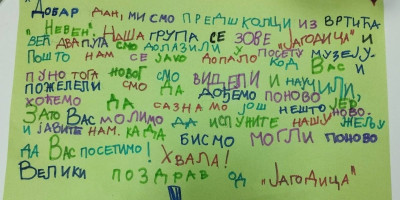 "ДОБАР ДАН, МИ СМО ПРЕДШКОЛЦИ ИЗ ВРТИЋА
"НЕВЕН". НАША ГРУПА СЕ ЗОВЕ "ЈАГОДИЦА" И
ВЕЋ ДВА ПУТА СМО ДОЛАЗИЛИ У ПОСЕТУ МУЗЕЈУ.
ПОШТО НАМ СЕ ЈАКО ДОПАЛО КОД ВАС И
ПУНО ТОГА НОВОГ СМО ВИДЕЛИ И НАУЧИЛИ,
ПОЖЕЛЕЛИ СМО ДА ДОЂЕМО ПОНОВО ЈЕР
ХОЋЕМО ДА САЗНАМО ЈОШ НЕШТО НОВО.
ЗАТО ВАС МОЛИМО ДА ИСПУНИТЕ НАШУ ЖЕЉУ
И ЈАВИТЕ НАМ КАДА БИСМО МОГЛИ ПОНОВО
ДА ВАС ПОСЕТИМО! ХВАЛА!
ВЕЛИКИ ПОЗДРАВ ОД "ЈАГОДИЦА"